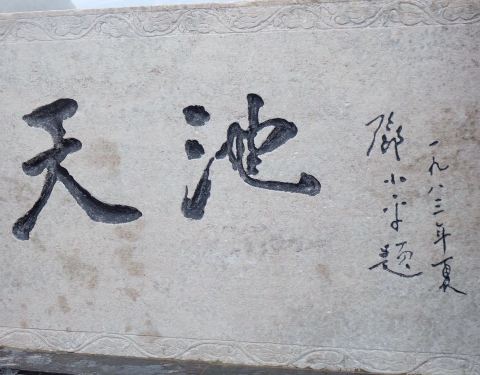 天池
邓小平题
一九八三年夏